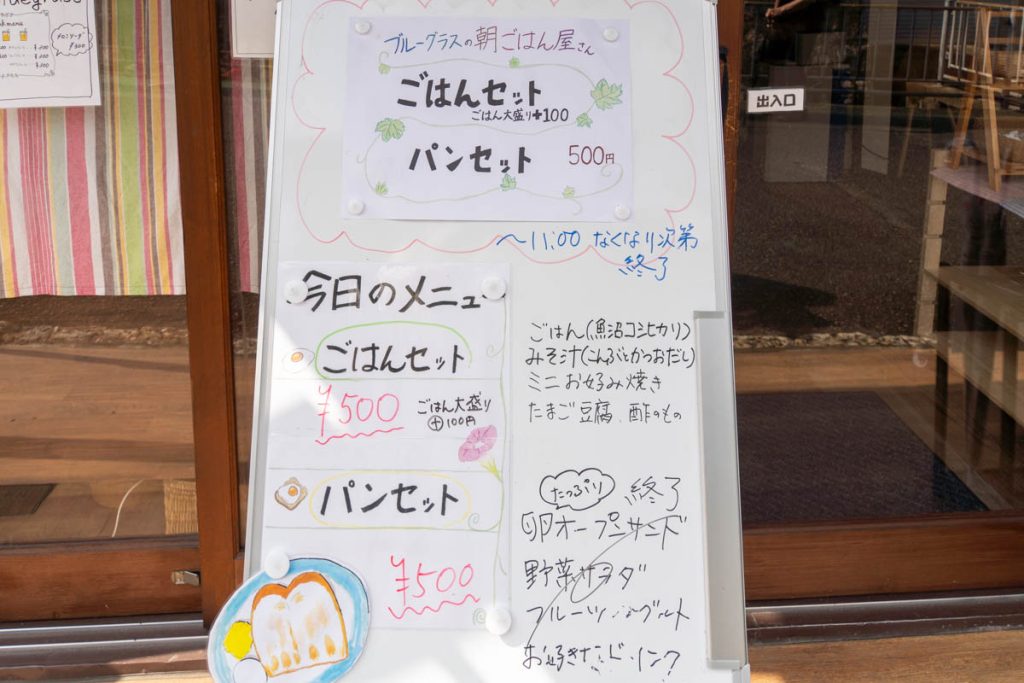 ブルーグラスの朝ごはん屋さん
ごはんセット
ごはん大盛り+100
パンセット 500円
〜11:00 なくなり次第
終了
出入口
今日のメニュー
ごはんセット
¥500 ごはん大盛り
+100円
パンセット
¥500
ごはん(魚沼コシヒカリ)
みそ汁(こんぶとかつおだし)
ミニお好み焼き
たまご豆腐、酢のもの
たっぷり 終了
卵オープンサンド
野菜サラダ
フルーツヨーグルト
お好きなドリンク
メロンソーダ